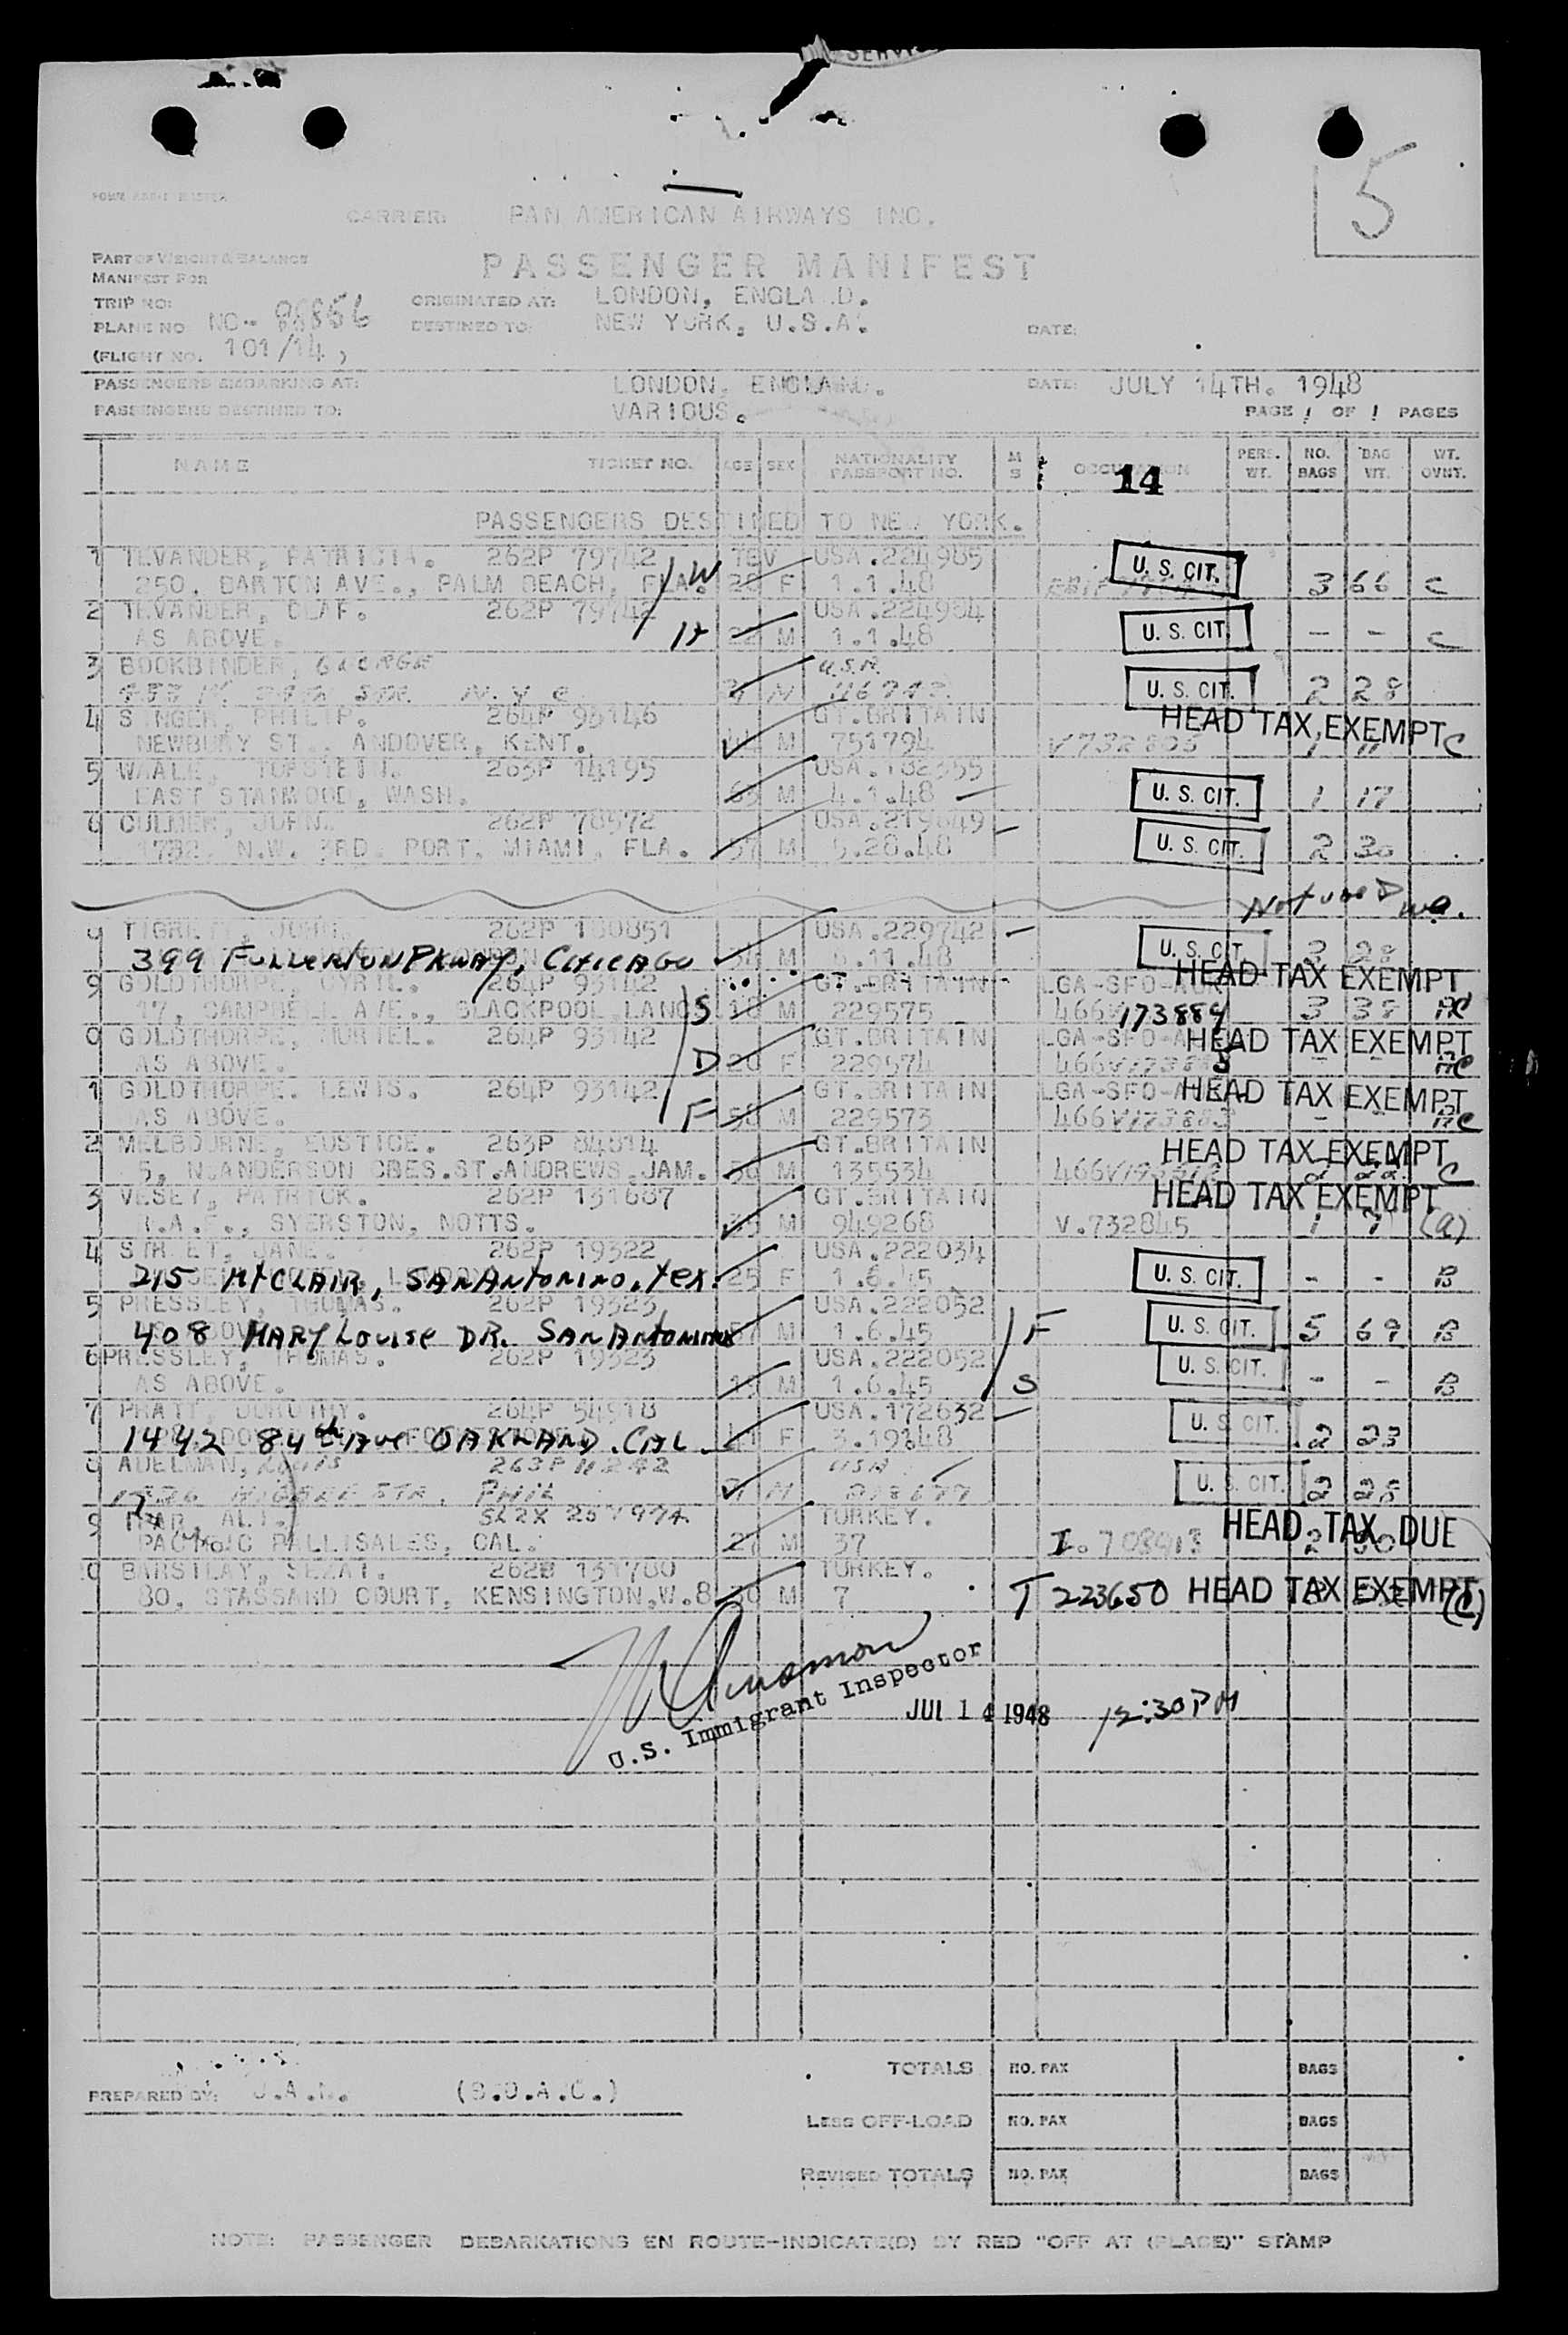 5
CARRIER: PAN AMERICAN AIRWAYS INC.
PART OF WEIGHT & BALANCE
MANIFEST FOR
PASSENGER MANIFEST
TRIP NO:
ORIGINATED AT: LONDON, ENGLA .D.
PLANE NO NC- 88856
DESTINED TO: NEW YORK, U.S.A. DATE:
(FLIGHT NO. 101/14 )
PASSENGERS EMBARKING AT: LONDON, ENGLAND. DATE: JULY 14TH. 1948
PASSENGERS DESTINED TO: VARIOUS. PAGE 1 OF 1 PAGES
NAME TICKET NO. AGE SEX NATIONALITY PASSPORT NO. M S OCCUPATION PERS. WT. NO. BAGS BAG WT. WT. OVNT.
14
PASSENGERS DESTINED TO NEW YORK.
1 TEVANDER, PATRICIA. 262P 79742 TEV USA.224985 U. S. CIT.
250, BARTON AVE., PALM BEACH, FLA. W 28 F 1.1.48 3 66 C
2 TEVANDER, OLAF. 262P 79742 USA.224984 U. S. CIT.
AS ABOVE. H 22 M 1.1.48 - - C
3 BOOKBINDER, GEORGE U.S.A. U. S. CIT.
N.Y.C. M 116743 2 28
4 SINGER, PHILIP. 264P 93146 GT.BRITAIN HEAD TAX EXEMPT
NEWBURY ST., ANDOVER, KENT. 44 M 751794 V732805 1 11 C
5 WAALE, TORSTEIN. 263P 14195 USA.132355 U. S. CIT.
EAST STANWOOD, WASH. 65 M 4.1.48 1 17
6 CULMER, JOHN. 262P 78572 USA.219649 U. S. CIT.
1782, N.W. 3RD. PORT, MIAMI, FLA. 57 M 5.28.48 2 30
Not used
TIGRETT, JOHN. 262P 130851 USA.229742 U. S. CIT.
399 FULLERTON PKWAY, CHICAGO 34 M 6.11.48 3 28
9 GOLDTHORPE, CYRIL. 264P 93142 GT.BRITAIN LGA-SFO- HEAD TAX EXEMPT
17, CAMPBELL AVE., BLACKPOOL LANCS S 18 M 229575 466V173884 3 38
0 GOLDTHORPE, MURIEL. 264P 93142 GT.BRITAIN LGA-SFO-A HEAD TAX EXEMPT
AS ABOVE. D 20 F 229574 - -
1 GOLDTHORPE. LEWIS. 264P 93142 GT.BRITAIN LGA-SFO- HEAD TAX EXEMPT
AS ABOVE. F 58 M 229573 466V173883 - -
2 MELBOURNE, EUSTICE. 263P 84814 GT.BRITAIN HEAD TAX EXEMPT
5, N.ANDERSON CRES.ST.ANDREWS.JAM. 50 M 135534 C
3 VESEY, PATRICK. 262P 131687 GT.BRITAIN HEAD TAX EXEMPT
R.A.F., SYERSTON, NOTTS. 35 M 949268 V.732845 1 7 (a)
4 STREET, JANE. 262P 19322 USA.222034 U. S. CIT.
215 MTCLAIR, SANANTONINO. TEX. 25 F 1.6.45 - - B
5 PRESSLEY, THOMAS. 262P 19323 USA.222052 U. S. CIT.
408 MARY LOUISE DR. SANANTONINO 57 M 1.6.45 F 5 69 B
6 PRESSLEY, THOMAS. 262P 19323 USA.222052 U. S. CIT.
AS ABOVE. 15 M 1.6.45 S - - B
7 PRATT, DOROTHY. 264P 54918 USA.172632 U. S. CIT.
1442 84th AVE OAKLAND. CAL 41 F 3.19.48 2 23
8 ADELMAN, LOUIS 263P 11242 USA U. S. CIT.
PHIL M 2 25
9 IPAR, ALI. TURKEY. HEAD TAX DUE
PACIFIC PALLISADES, CAL. 27 M 37
0 BARSILAY, SEZAI. 262B 131700 TURKEY.
80, STASSARD COURT, KENSINGTON,W.8 30 M 7 T 223650 HEAD TAX EXEMPT (C)
U.S. Immigrant Inspector
JUL 14 1948 12:30PM
TOTALS NO. PAX BAGS
PREPARED BY: J.A.N. (B.O.A.C.)
LESS OFF-LOAD NO. PAX BAGS
REVISED TOTALS NO. PAX BAGS
NOTE: PASSENGER DEBARKATIONS EN ROUTE-INDICATE(D) BY RED "OFF AT (PLACE)" STAMP